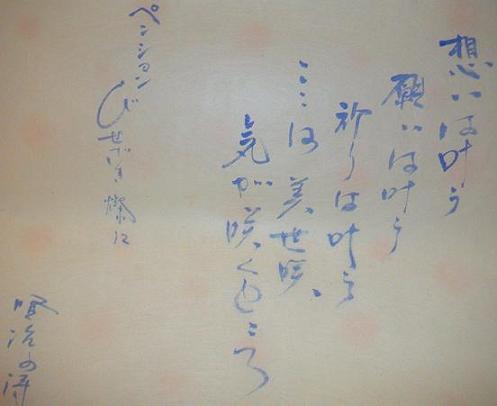 想いは叶う
願いは叶う
祈りは叶う
ここは美世咲、
気が咲くところ
ペンション
びせざき 燦に